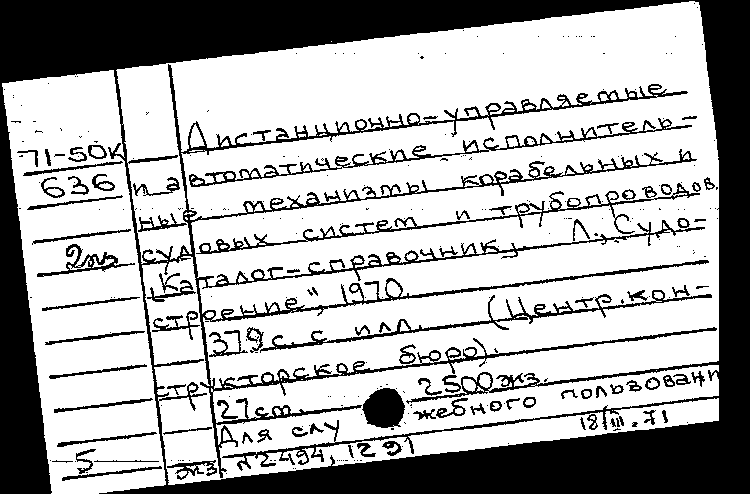 Дистанционно-управляемые
71-50К
и автоматические исполнитель-
636
ные механизмы корабельных и
судовых систем и трубопроводов.
2экз
Каталог-справочник, Л., „Судо-
строение", 1970.
379 с. с илл. (Центр. кон-
структорское бюро).
27 cm. 2500 экз.
Для служебного пользовани
18/III.71
5
экз. №2494, 1291